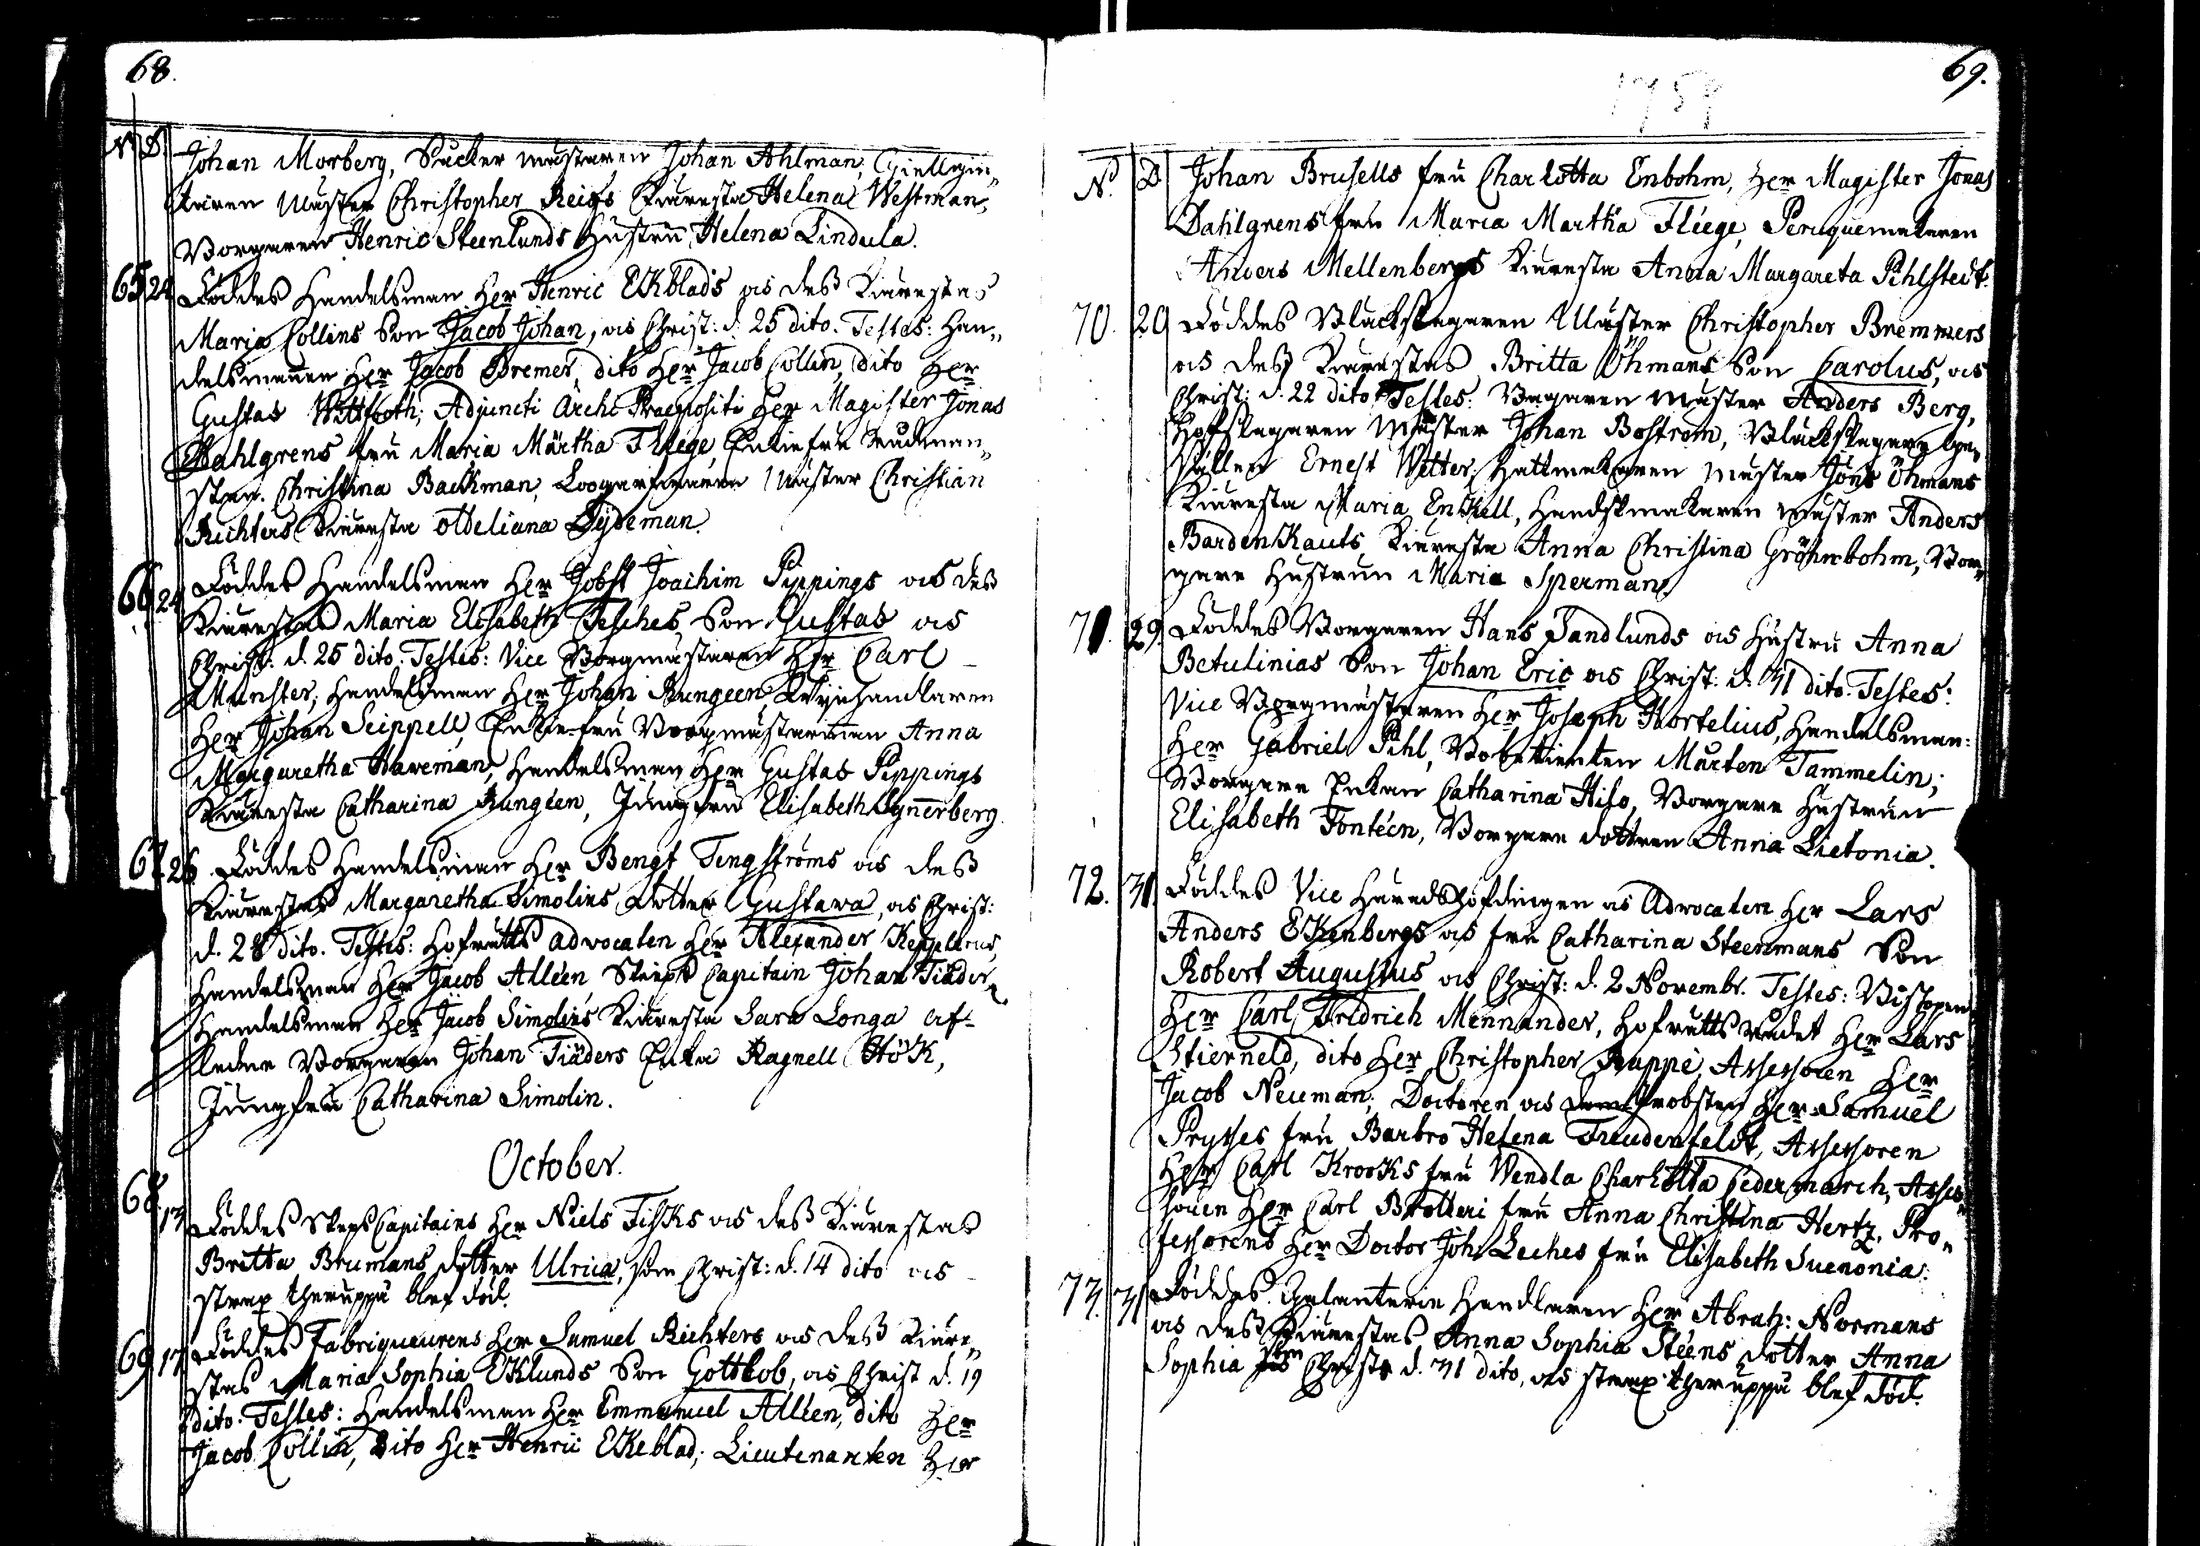 68.
N D
Johan Morberg, Sucker mästaren Johan Ahlman, Giellgiu-
taren Mäster Christopher Reigs Kiäresta Helena Westman,
Borgaren Henric Steenlunds Hustru Helena Lindula.
65 24 Föddes Handelsman Her Henric Ekblads os dess Kiärestas
Maria Collins Son Jacob Johan, os Christ: d. 25 dito. Testes: Han-
delsmannen Her Jacob Bremer, dito Her Jacob Collin, dito Her
Gustas Wittfooth; Adjuncti Archi Praepositi Her Magister Jonas
Dahlgrens fru Maria Märtha Fliege, Enkiefru Rudman-
skan Christina Backman, Loogarfwaren Mäster Christian
Richters Kiäresta Adeliana Sydeman.
66 24 Föddes Handelsman Her Jobst Joachim Pippings os dess
Kiärestas Maria Elisabeth Tesches, Son Gustas os
Christ: d. 25 dito. Testes: Vice Borgmästaren Her Carl
Munster, Handelsman Her Johan Rungeen, Wijnhandlaren
Her Johan Seippell, Enkie-fru Borgmästarinnan Anna
Margaretha Haveman, Handelsman Her Gustas Pippings
Kiäresta Catharina Rungéen, Jungfru Elisabeth Synnerberg.
67. 26 Föddes Handelsman Her Bengt Tengströms os dess
Kiärestas Margaretha Simolins Dotter Gustava, os Christ:
d. 28 dito. Testes: Hofrätts Advocaten Her Alexander Kepplerus,
Handelsman Her Jacob Alléen Skieps Capitain Johan Tiäder,
Handelsman Her Jacob Simolins Kiäresta Sara Longa af-
ledne Borgaren Johan Tiäders Enka Ragnell Hök,
Jungfru Catharina Simolin.
October.
68 13 Föddes Skeps Capitains Her Niels Fisks os dess Kiärestas
Britta Brumans dotter Ulrica, som Christ: d. 14 dito os
strax theruppå blef död.
69 17 Föddes Fabriqueurens Her Samuel Richters os dess Kiäre-
stas Maria Sophia Eklunds Son Gottlob, os Christ d. 19
dito. Testes: Handelsman Her Emmanuel Alléen, dito Her
Jacob Collin, Dito Her Henric Ekeblad; Lieutenanten Her
69.
1759
N. D
Johan Brusells fru Charlotta Enbohm, Her Magister Jonas
Dahlgrens fru Maria Martha Fliege, Peruquemakaren
Anders Mellenbergs Kiäresta Anna Margareta Pihlstedt.
70. 20 Föddes Blackslagaren Mäster Christopher Bremmers
os dess Kiärestas Britta Öhmans Son Carolus, os
Christ: d. 22 dito Testes: Bagaren Mäster Anders Berg,
Hofslagaren Mäster Johan Boström, Blackslagare Ge-
sällen Ernest Wetter, Hattmakaren Mäster Jöns Öhmans
Kiäresta Maria Enkell, Handskmakaren Mäster Anders
Bardenkauts Kiäresta Anna Christina Gröhnbohm, Bor-
gare Hustrun Maria Sperman.
71. 29 Föddes Borgaren Hans Sandlunds os Hustru Anna
Betulinias Son Johan Eric os Christ: d. 31 dito. Testes:
Vice Borgmästaren Her Joseph Hortelius, Handelsman:
Her Gabriel Pihl, Mårten Tammelin;
Borgare Enkan Catharina Hilo, Borgare Hustrun
Elisabeth Fontéen, Borgare dottren Anna Lietonia.
72. 31 Föddes Vice Häradshöfdingen os Advocaten Her Lars
Anders Ekenbergs os fru Catharina Steenmans Son
Robert Augustus os Christ: d. 2 Novembr. Testes: Biskopen
Her Carl Fredrich Mennander, Hofrätts Rådet Her Lars
Stierneld, dito Her Christopher Rappe, Assessoren Her
Jacob Neuman; Doctoren os Probsten Her Samuel
Prysses fru Barbro Helena Freudenfeldt, Assessoren
Her Carl Krooks fru Wendla Charlotta Cedermarch, Asses-
soren Her Carl Brolleri fru Anna Christina Hertz, Pro-
fessorens Her Doctor Joh. Leches fru Elisabeth Suenonia.
73. 31 Föddes Galanterie Handlaren Her Abrah: Normans
os dess Kiärestas Anna Sophia Stéens dotter Anna
Sophia som Christ d. 31 dito, os strax theruppå blef död.